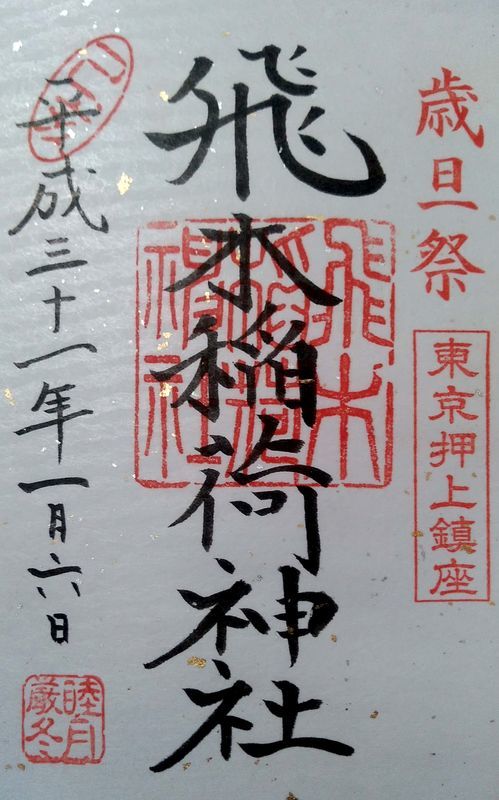 歳旦祭
東京押上鎮座
飛木稲荷神社
飛木稲荷神社
平成三十一年一月六日
睦月厳冬